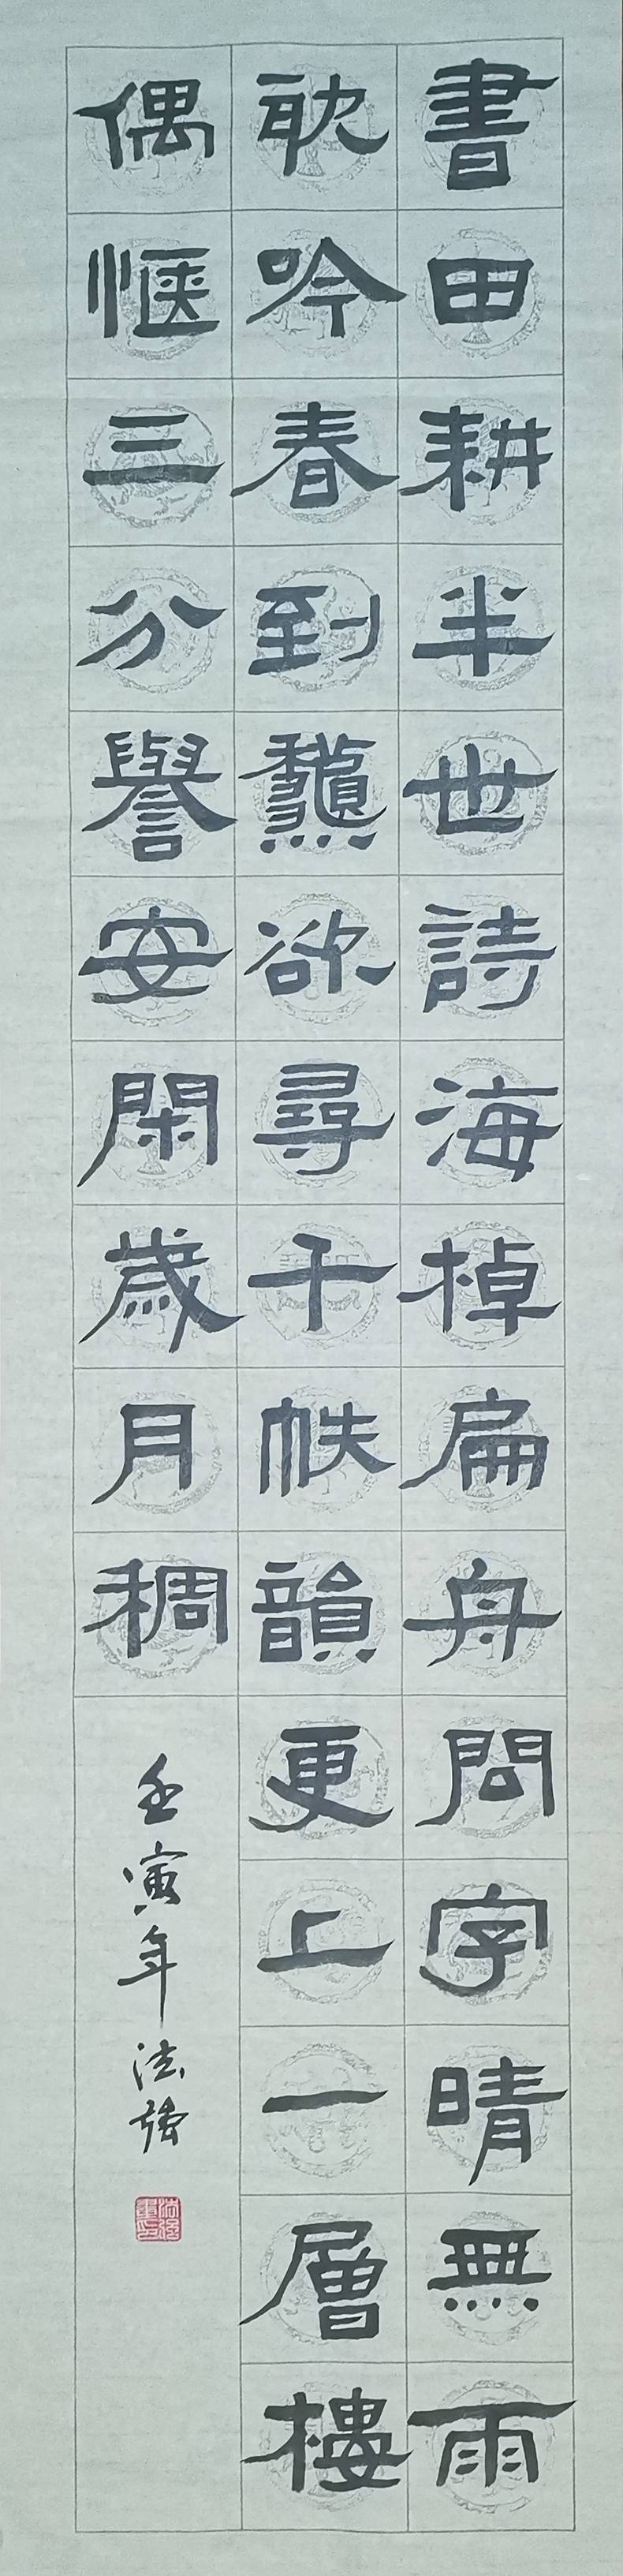 書田耕半世詩海棹扁舟問字晴無雨
耽吟春到龝欲尋千帙韻更上一層樓
偶愜三分譽安閑歲月稠
壬寅年法強